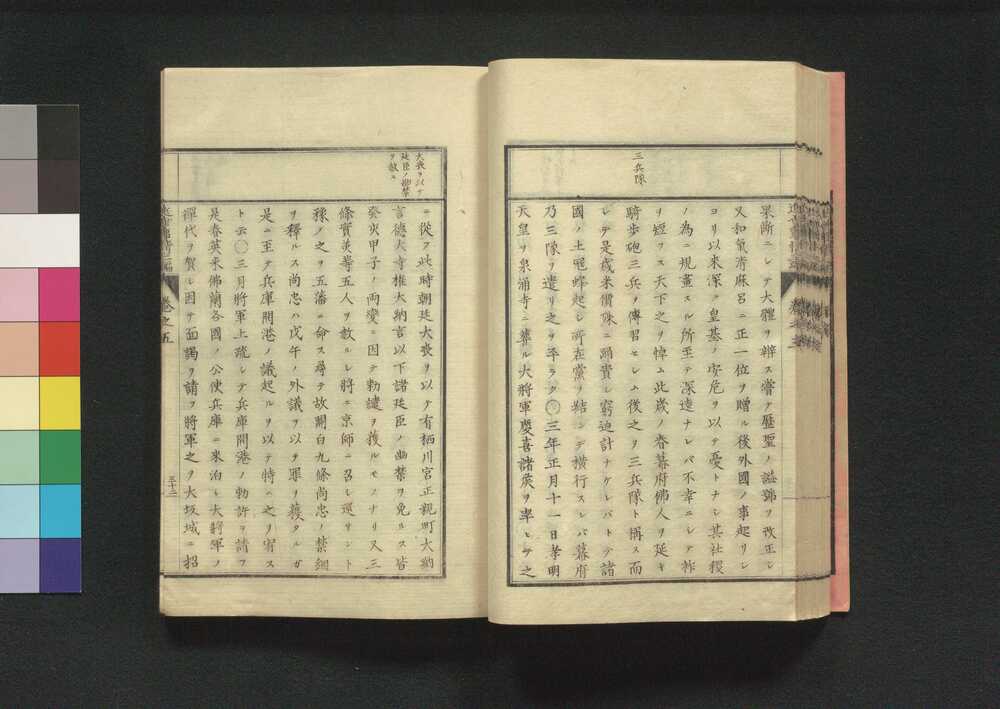 三兵隊
果斷ニシテ大體ヲ辨ス嘗テ歷聖ノ謚號ヲ改正シ
又和氣清麻呂ニ正一位ヲ贈ル後外國ノ事起リシ
ヨリ以來深ク皇基ノ安危ヲ以テ憂トナシ其社稷
ノ為ニ規畫スル所至テ深遠ナレバ不幸ニシテ祚
ヲ短フス天下之ヲ悼ム此歲ノ春幕府佛人ヲ延キ
騎步砲三兵ヲ傳習セシム後之ヲ三兵隊ト稱ス而
シテ是歲米價殊ニ踊貴シ窮迫計ナケレバトテ諸
國ノ土冦蜂起シ所在黨ヲ結ンデ橫行スレバ幕府
乃三隊ヲ遣リ之ヲ平ラク〇三年正月十一日孝明
天皇ヲ泉涌寺ニ葬ル大將軍慶喜諸矦ヲ率ヒテ之
大喪ヲ以テ
廷臣ノ幽禁
ヲ赦ス
ニ從フ此時朝廷大喪ヲ以テ有栖川宮正親町大納
言德大寺權大納言以下諸廷臣ノ幽禁ヲ免ルス皆
癸亥甲子ノ兩變ニ因テ勅譴ヲ獲ルモノナリ又三
條實美等五人ヲ赦ルシ將ニ京師ニ召シ還サント
豫メ之ヲ五藩ニ命ス尋テ故關白九條尚忠ノ禁錮
ヲ釋ルス尚忠ハ戊午ノ外議ヲ以テ罪ヲ獲タルガ
是ニ至テ兵庫開港ノ議起ルヲ以テ特ニ之ヲ宥ス
ト云〇三月將軍上疏シテ兵庫開港ノ勅許ヲ請フ
是春英米佛蘭各國ノ公使兵庫ニ來泊シ大將軍ノ
襌代ヲ賀シ因テ面謁ヲ請ヲ將軍之ヲ大坂城ニ招
卷之五
五十二